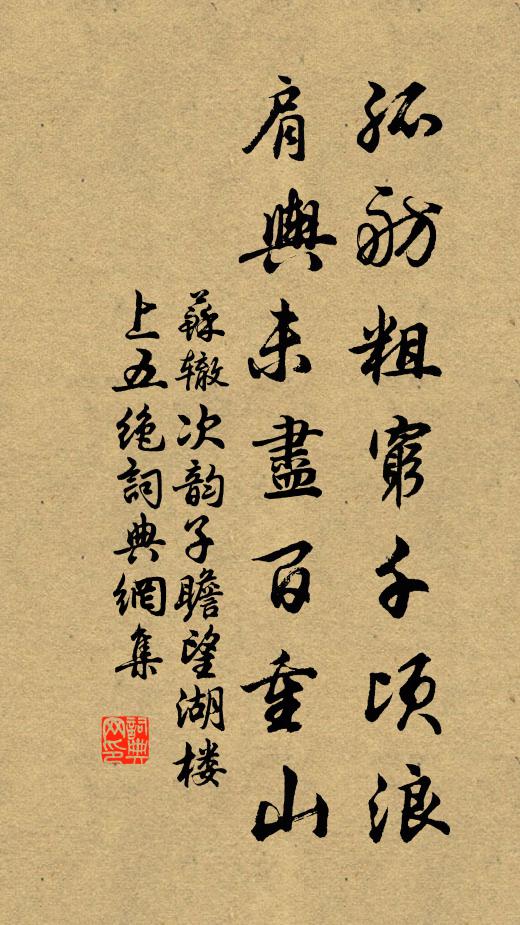 孤舫粗窮千頃浪
肩輿未盡百重山
蘇辙次韵子瞻望湖楼
上五绝詞典網集
詞典
网印